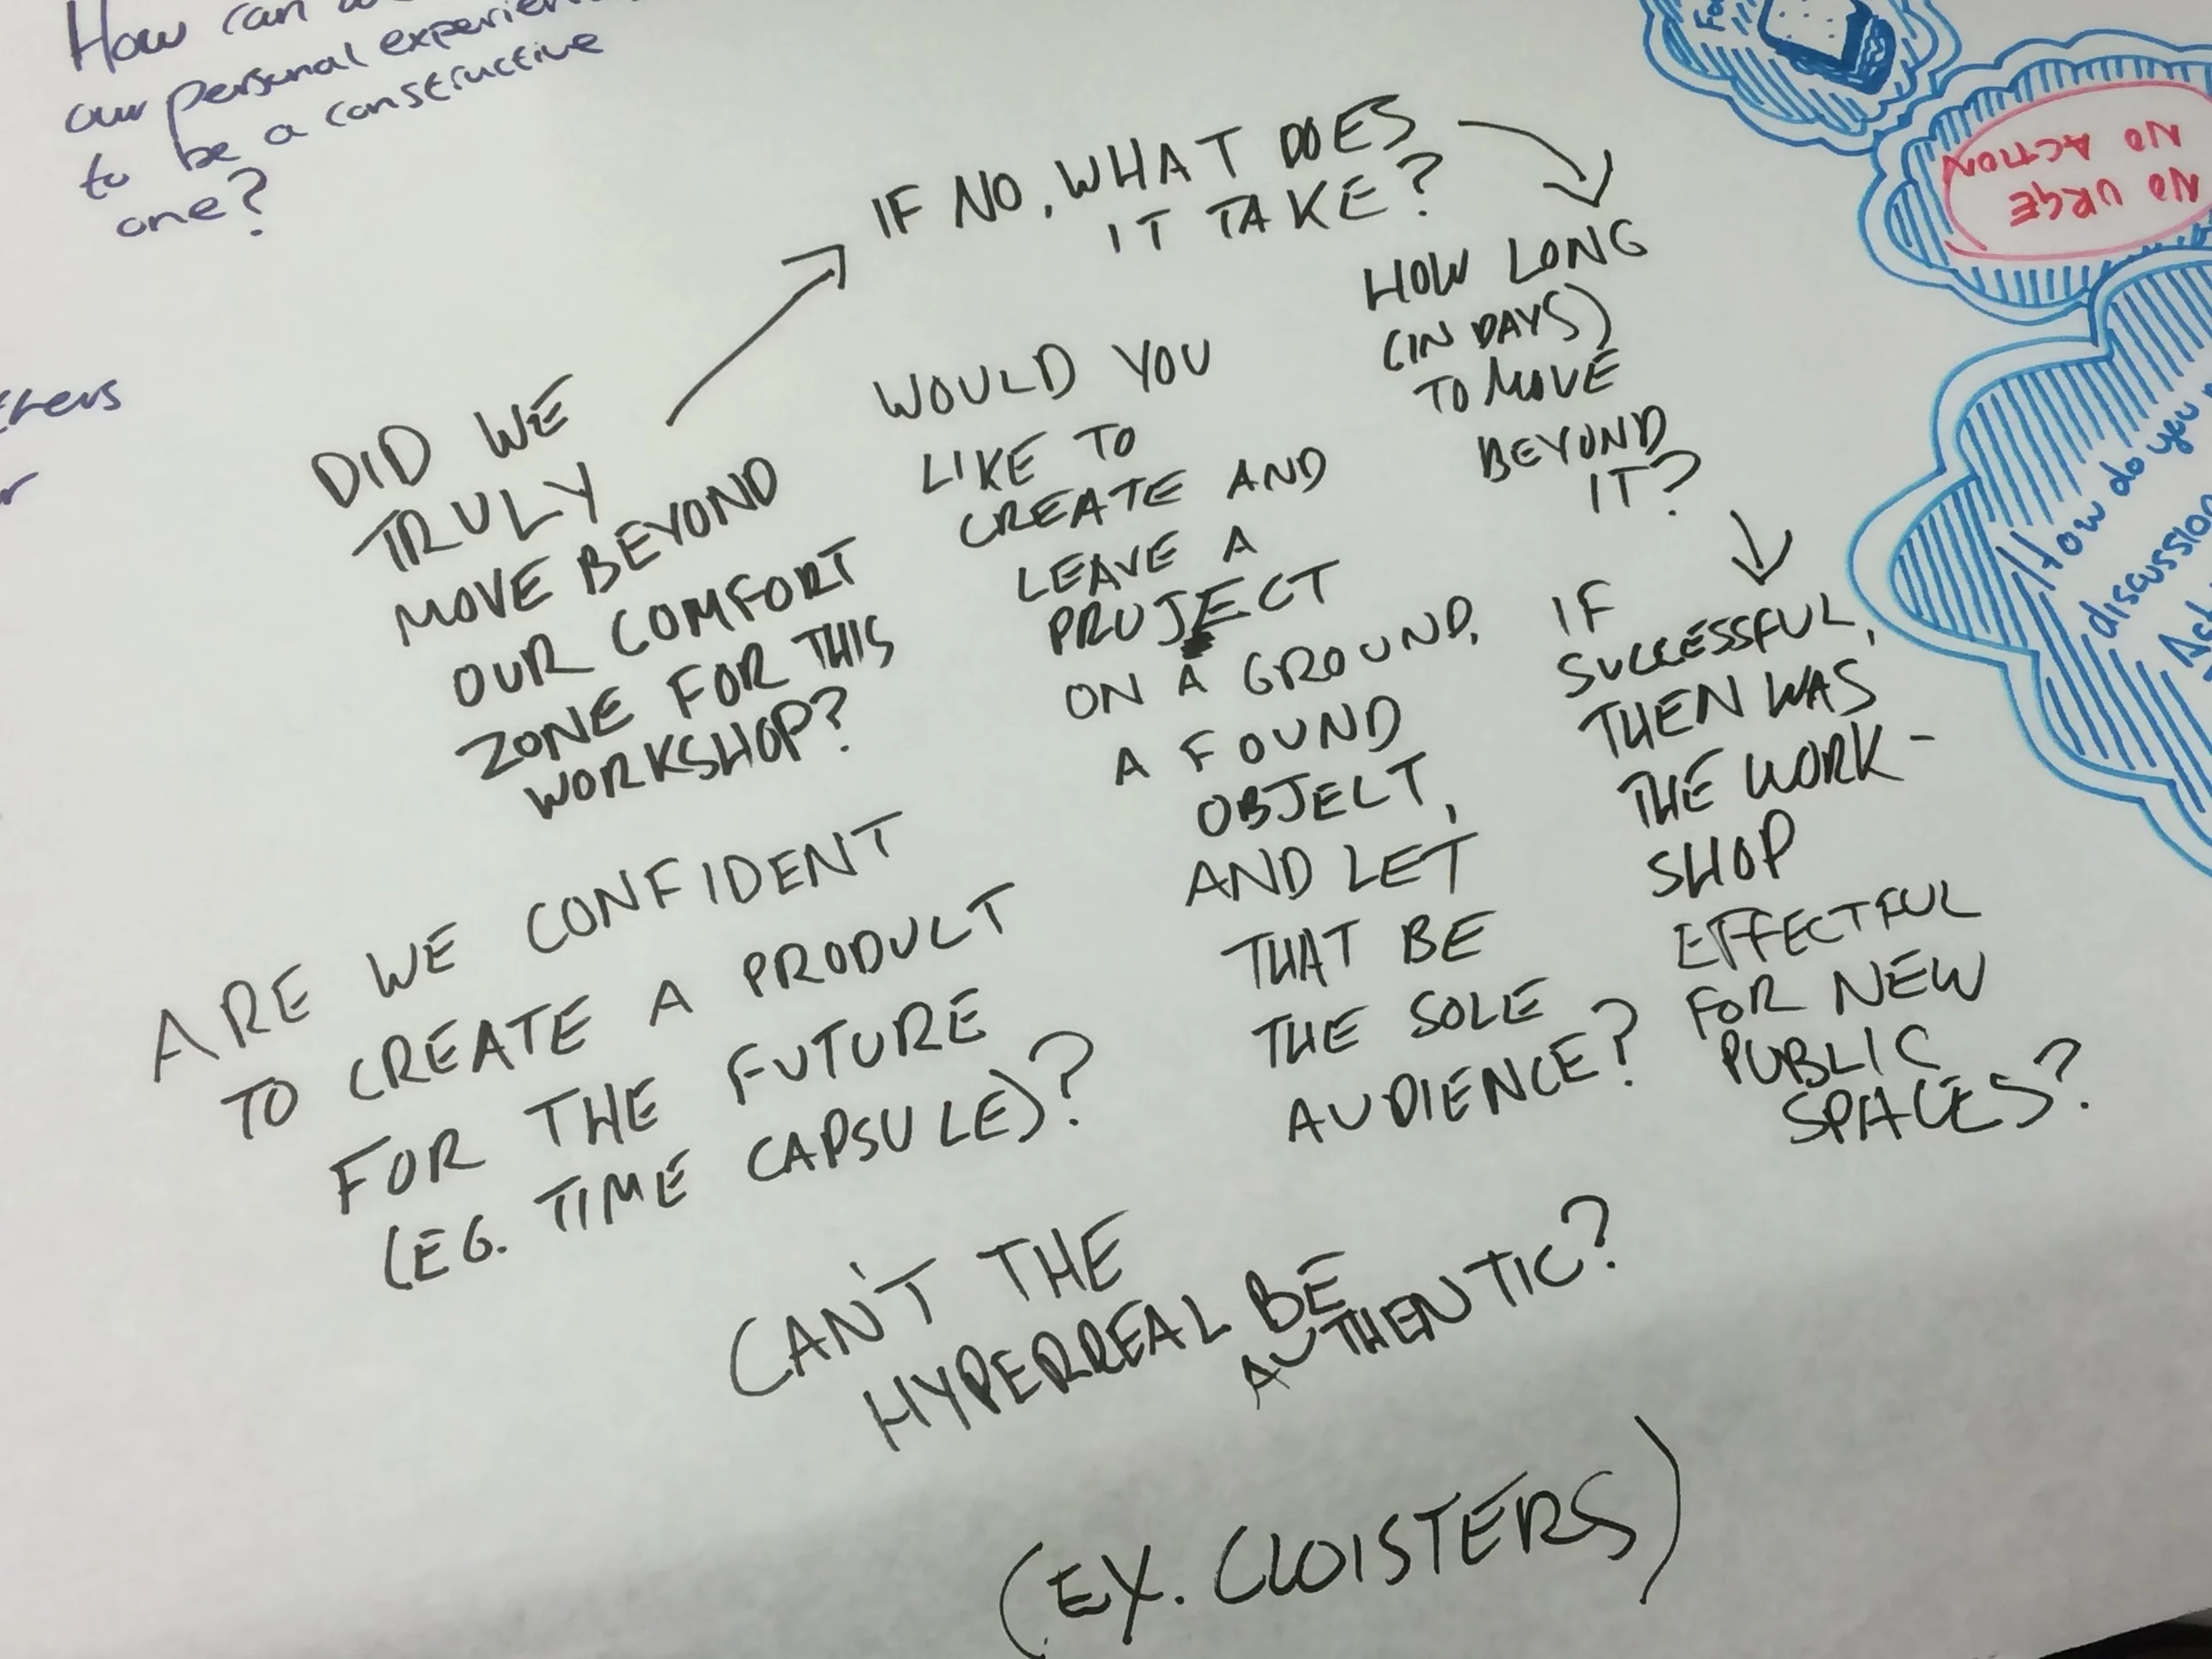 How can
our personal
to be a constructive
one?
DID WE
TRULY
MOVE BEYOND
OUR COMFORT
ZONE FOR THIS
WORKSHOP?
IF NO, WHAT DOES
IT TAKE?
HOW LONG
(IN DAYS)
TO MOVE
BEYOND
IT?
IF
SUCCESSFUL,
THEN WAS
THE WORK-
SHOP
EFFECTFUL
FOR NEW
PUBLIC
SPACES?
WOULD YOU
LIKE TO
CREATE AND
LEAVE A
PROJECT
ON A GROUND,
A FOUND
OBJECT,
AND LET
THAT BE
THE SOLE
AUDIENCE?
ARE WE CONFIDENT
TO CREATE A PRODUCT
FOR THE FUTURE
(EG. TIME CAPSULE)?
CAN'T THE
HYPERREAL BE
AUTHENTIC?
(EX. CLOISTERS)
NO URGE
NO ACTION
How do you
discussion